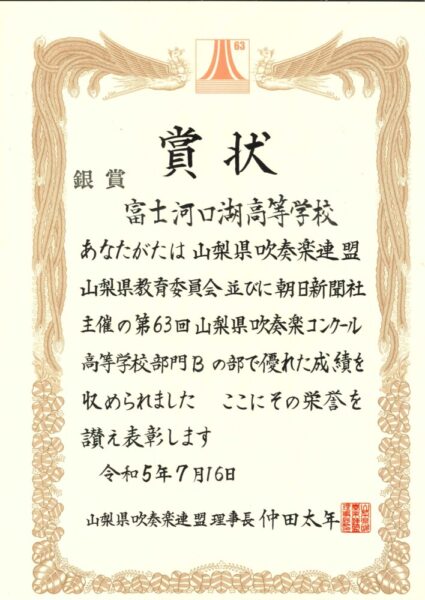 63
賞状
銀賞
富士河口湖高等学校
あなたがたは山梨県吹奏楽連盟
山梨県教育委員会並びに朝日新聞社
主催の第63回山梨県吹奏楽コンクール
高等学校部門Bの部で優れた成績を
収められました ここにその栄誉を
讃え表彰します
令和5年7月16日
山梨県吹奏楽連盟理事長 仲田太年